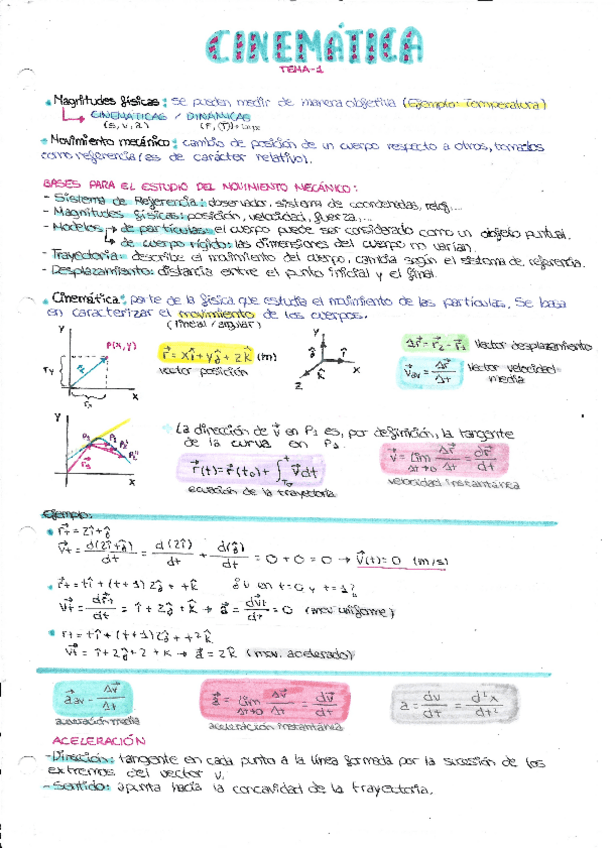 CINEMÁTICA
TEMA-1
Magnitudes físicas: se pueden medir de manera objetiva (Ejemplo: Temperatura)
CINEMÁTICAS / DINÁMICAS
(s, v, a)
Movimiento mecánico: cambio de posición de un cuerpo respecto a otros, tomados
como referencia (es de carácter relativo).
BASES PARA EL ESTUDIO DEL MOVIMIENTO MECÁNICO:
- Sistema de Referencia: observador, sistema de coordenadas, reloj,...
- Magnitudes físicas: posición, velocidad, fuerza,...
- Modelos → de partículas: el cuerpo puede ser considerado como un objeto puntual.
↳ de cuerpo rígido: las dimensiones del cuerpo no varían.
- Trayectoria: describe el movimiento del cuerpo, cambia según el sistema de referencia.
- Desplazamiento: distancia entre el punto inicial y el final.
Cinemática: parte de la física que estudia el movimiento de las partículas. Se basa
en caracterizar el movimiento de los cuerpos.
(lineal / angular)
Y P(x, y) ry rx X
r⃗ = xî + yĵ + zk̂ (m)
vector posición
ĵ î k̂ X Z Y
Δr⃗ = r⃗₂ - r⃗₁ Vector desplazamiento
v⃗av = Δr⃗/Δt Vector velocidad
media
Y P₁ P₂ X
La dirección de v⃗ en P₁ es, por definición, la tangente
de la curva en P₁.
r⃗(t) = r⃗(t₀) + ∫ v⃗dt
ecuación de la trayectoria
v⃗ = lim Δt→0 Δr⃗/Δt = dr⃗/dt
velocidad instantánea
Ejemplo:
r⃗t = 2î + ĵ
v⃗t = d(2î+ĵ)/dt = d(2î)/dt + d(ĵ)/dt = 0 + 0 = 0 → v⃗(t) = 0 (m/s)
r⃗t = tî + (t+1)2ĵ + tk̂ ¿v en t=0 y t=1?
v⃗t = dr⃗t/dt = î + 2ĵ + k̂ → a⃗ = dv⃗t/dt = 0 (mov uniforme)
rt = tî + (t+1)2ĵ + t²k̂
v⃗t = î + 2ĵ + 2tk → a⃗ = 2k̂ (mov. acelerado)
a⃗av = Δv⃗/Δt
aceleración media
a⃗ = lim Δt→0 Δv⃗/Δt = dv⃗/dt
aceleración instantánea
a = dv/dt = d²x/dt²
ACELERACIÓN
- Dirección: tangente en cada punto a la línea formada por la sucesión de los
extremos del vector v.
- Sentido: apunta hacia la concavidad de la trayectoria.